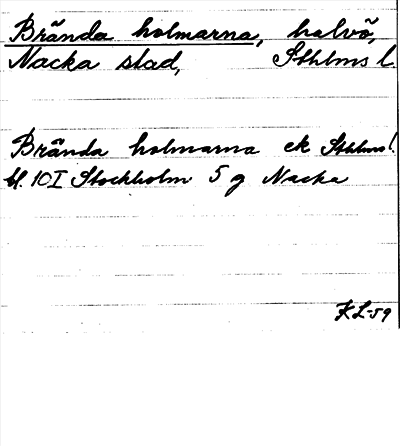 Brända holmarna, halvö,
Nacka stad, Sthlms l.
Brända holmarna ek Sthlms l.
bl. 10I Stockholm 5 g Nacka
KL-59